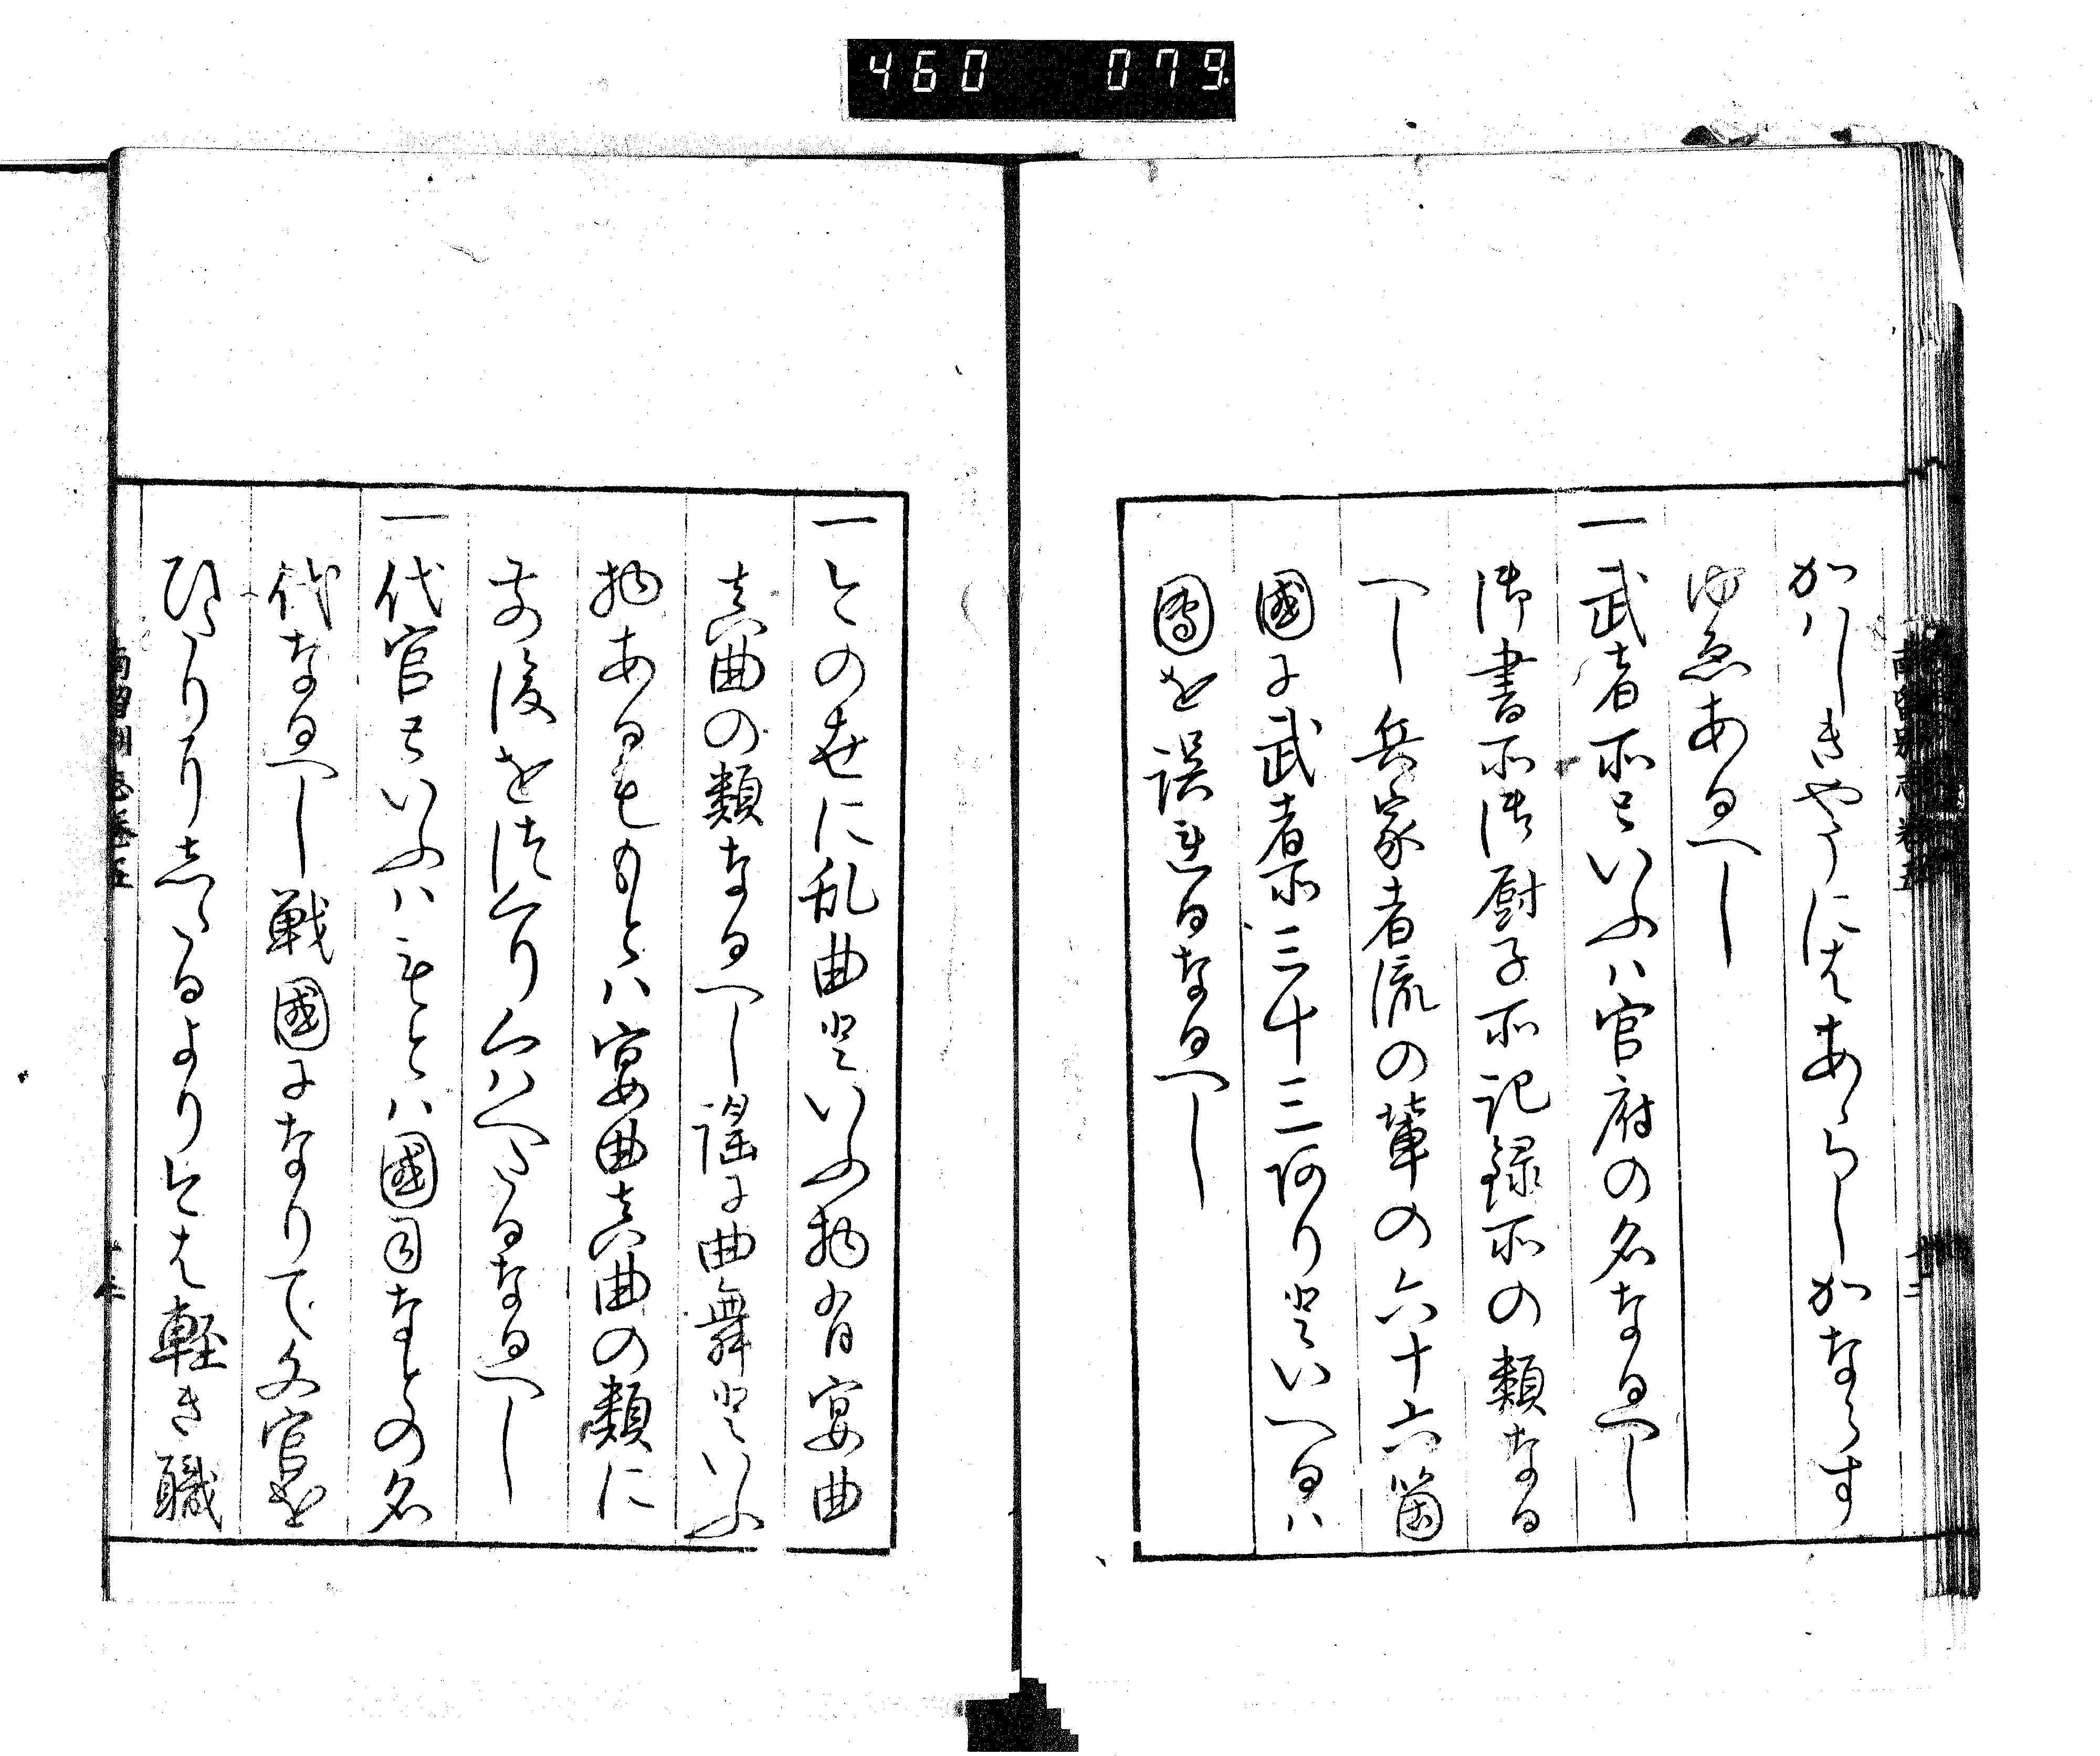 460 079
かハしきやうにはあらしかならす
ゆゑあるへし
一武者所といふハ官府の名なるへし
御書所御厨子所記録所の類なる
へし兵家者流の輩の六十六箇
國に武者所三十三阿りといへるハ
圖を誤連るなるへし
一今の世に乱曲といふ物有宴曲
真曲の類なるへし謡に曲舞といふ
物あるももとハ宴曲真曲の類に
前後をつくりくハへたるなるへし
代官といふハもとハ國司なとの名
代なるへし戦國になりて文官を
ひたりしるより今は軽き職